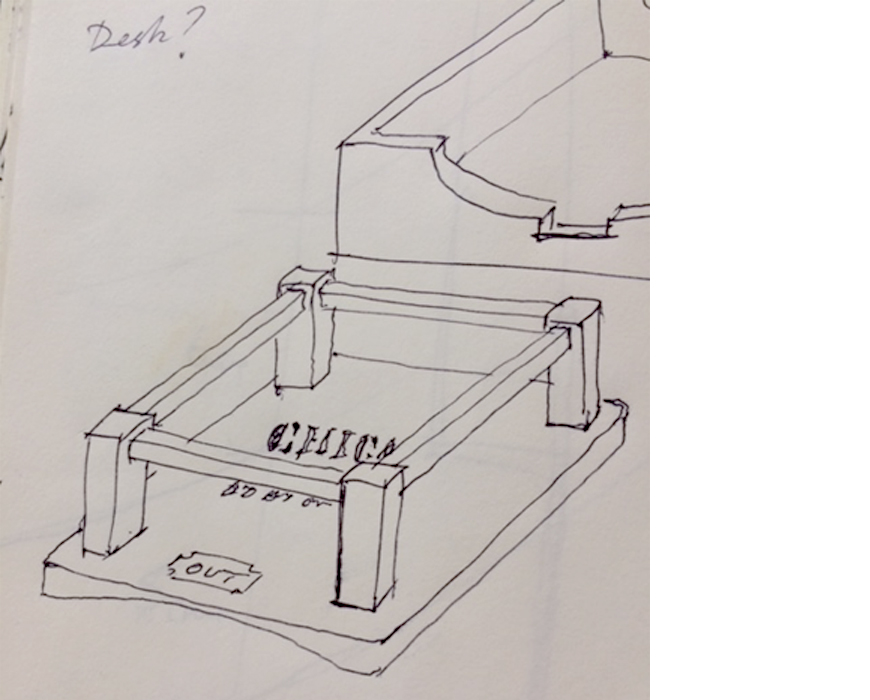 Desk?
CHICA
OUT